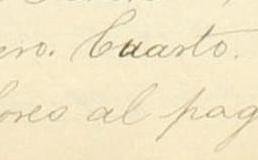 ero. Cuarto.
ores al pag